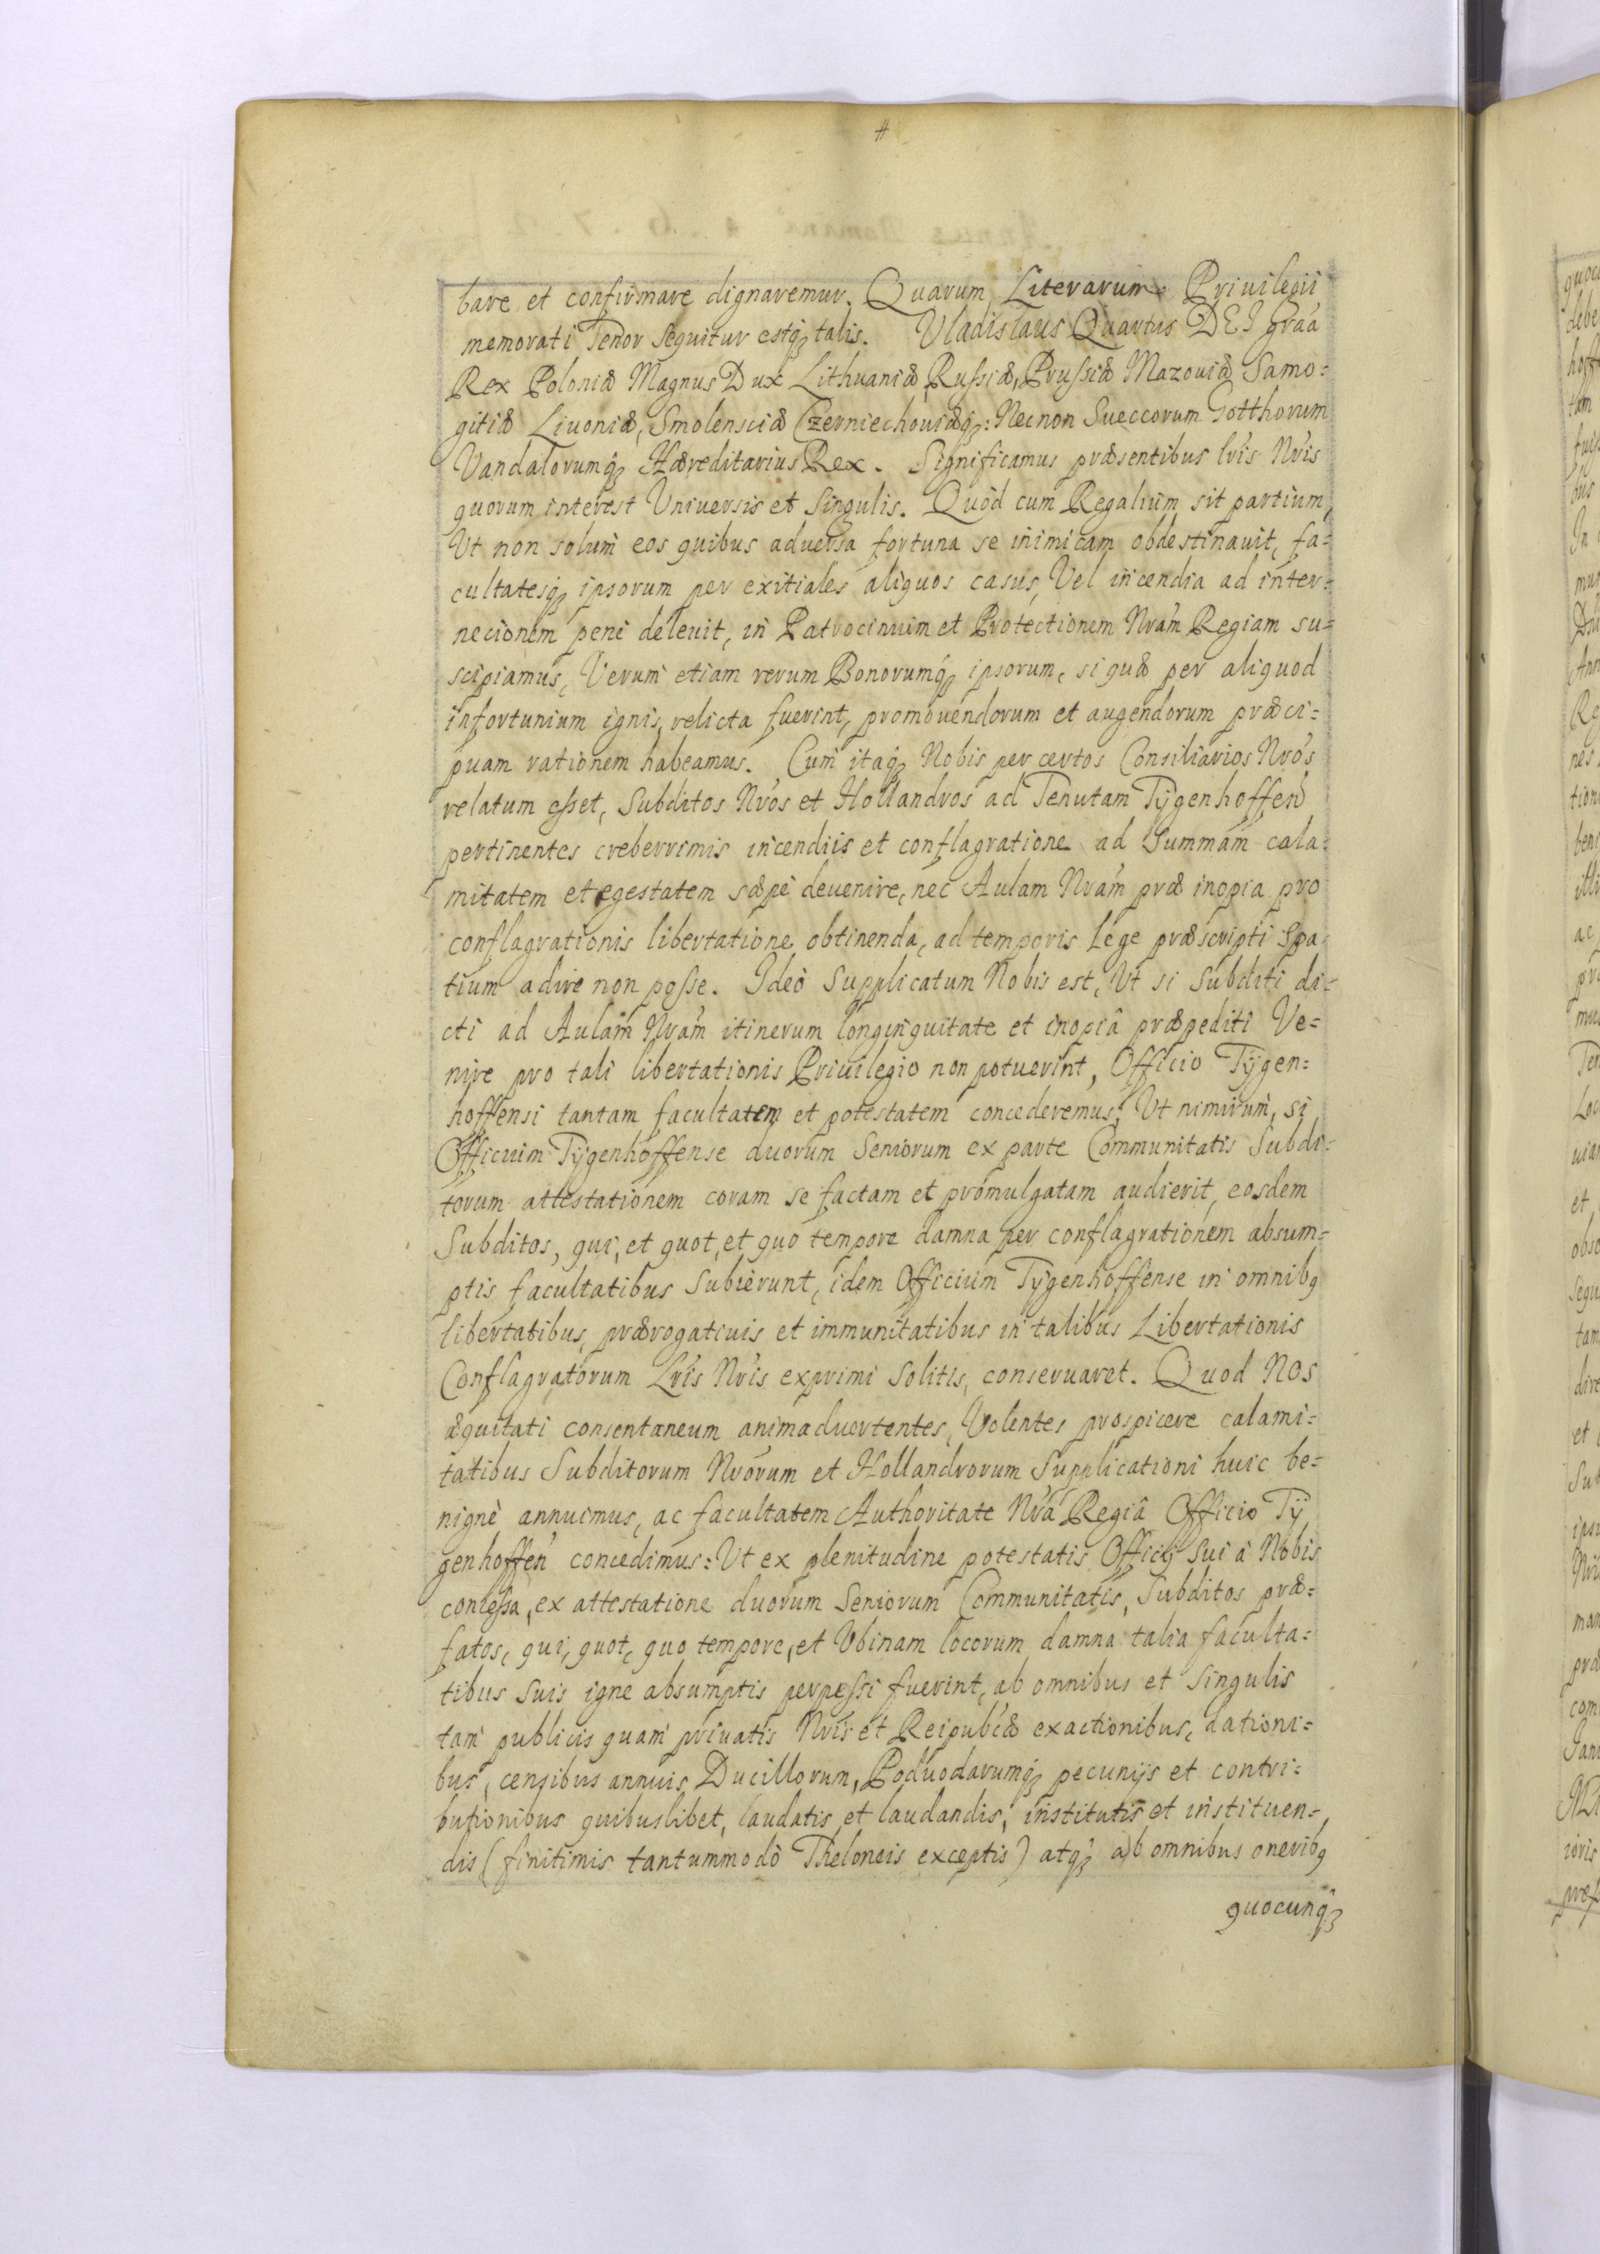 #
bare et confirmare dignaremur. Quarum Literarum Priuilegii
memorati Tenor sequitur estq́ꝫ talis. Vladislaus Quartus DEI graâ
Rex Poloniæ Magnus Dux Lithuaniæ, Russiæ, Prussiæ Mazouiæ Samo=
gitiæ Liuoniæ, Smolensciæ Czerniechouiæq́ꝫ: Necnon Sueccorum Gotthorum
Vandalorumq́ꝫ Hæreditarius Rex. Significamus præsentibus lris Nris
quorum interest Vniuersis et singulis. Quòd cum Regalium sit partium,
Vt non solum̀ eos quibus aduersa fortuna se inimicam obdestinauit, fa=
cultatesq́ꝫ ipsorum per exitiales aliquos casus, Vel incendia ad inter=
necionem penè deleuit, in Patrocinium et Protectionem Nrám Regiam su=
scipiamus, Verum̀ etiam rerum Bonorumq́ꝫ ipsorum, si quæ per aliquod
infortunium ignis, relicta fuerint, promouendorum et augendorum præci=
puam rationem habeamus. Cum̀ itaq́ꝫ Nobis per certos Consiliarios Nrós
relatum esset, Subditos Nrós et Hollandros ad Tenutam Tÿgenhoffeń
pertinentes creberrimis incendiis et conflagratione ad Summam cala=
mitatem et egestatem sæpè deuenire, nec Aulam Nrám præ inopia pro
conflagrationis libertatione obtinenda, ad temporis Lege præscripti spa=
tium adire non posse. Ideò Supplicatum Nobis est, Vt si Subditi di=
cti ad Aulam Nrám itinerum longinquitate et inopiâ præpediti Ve=
nire pro tali libertationis Priuilegio non potuerint, Officio Tÿgen=
hoffensi tantam facultatem et potestatem concederemus: Vt nimirum̀, si
Officium Tÿgenhoffense duorum Seniorum ex parte Communitatis Subdi=
torum attestationem coram se factam et promulgatam audierit, eosdem
Subditos, qui, et quot, et quo tempore damna per conflagrationem absum=
ptis facultatibus Subierunt, idem Officium Tÿgenhoffense in omnibꝰ
libertatibus, prærogatiuis et immunitatibus in talibus Libertationis
Conflagratorum Lrís Nrís exprimi solitis, conseruaret. Quod NOS
æquitati consentaneum animaduertentes, Volentes prospicere calami=
tatibus Subditorum Nrórum et Hollandrorum Supplicationi huic be=
nignè annuimus, ac facultatem Authoritate Nrâ Regiâ Officio Tÿ
genhoffeń concedimus: Vt ex plenitudine potestatis Officij sui à Nobis
concessa, ex attestatione duorum Seniorum Communitatis, Subditos præ=
fatos, qui, quot, quo tempore, et Vbinam locorum damna talia faculta=
tibus suis igne absumptis perpessi fuerint, ab omnibus et singulis
tam̀ publicis quam̀ priuatis Nrís et Reipubĺcæ exactionibus, dationi=
bus, censibus annuis Ducillorum, Poduodarumq́ꝫ pecunijs et contri=
butionibus quibuslibet, laudatis et laudandis, institutis et instituen=
dis (finitimis tantummodò Theloneis exceptis) atq́ꝫ ab omnibus oneribꝰ
quocunq́ꝫ